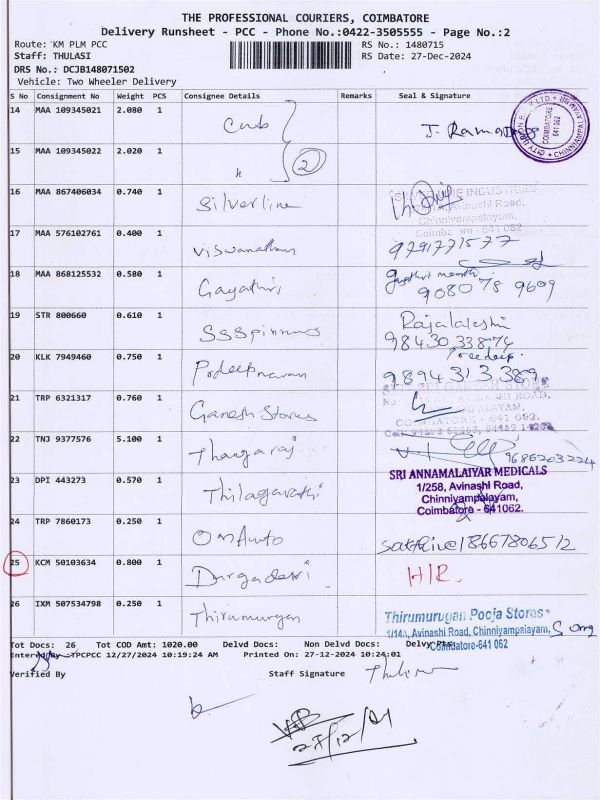 THE PROFESSIONAL COURIERS, COIMBATORE
Delivery Runsheet - PCC - Phone No.:0422-3505555 - Page No.:2
Route: KM PLM PCC RS No.: 1480715
Staff: THULASI RS Date: 27-Dec-2024
DRS No.: DCJB148071502
Vehicle: Two Wheeler Delivery
S No Consignment No Weight PCS Consignee Details Remarks Seal & Signature
14 MAA 109345021 2.080 1
COIMBATORE 641 062
CHINNIYAMPALAYAM
15 MAA 109345022 2.020 1 " 2
16 MAA 867406034 0.740 1 Silverline
INDUSTRIES
Avinashi Road,
Chinniyampalayam,
Coimbatore - 641 062
17 MAA 576102761 0.400 1 Viswanathan 9791771577
18 MAA 868125532 0.580 1 Gayathri 908078 9609
19 STR 800660 0.610 1 SSSpinners Rajalakshmi
98430 33874
20 KLK 7949460 0.750 1 98943 13 389
21 TRP 6321317 0.760 1 Ganesh Stores
STORE
AVINASHI ROAD,
COIMBATORE - 641 062.
22 TNJ 9377576 5.100 1 Thangaraj 9686203224
SRI ANNAMALAIYAR MEDICALS
23 DPI 443273 0.570 1 Thilagavathi 1/258, Avinashi Road,
Chinniyampalayam,
Coimbatore - 641062.
24 TRP 7860173 0.250 1 OM Auto
25 KCM 50103634 0.800 1 Durgadevi H/R.
26 IXM 507534798 0.250 1 Thirumurugan Thirumurugan Pooja Stores
Avinashi Road, Chinniyampalayam,
Coimbatore-641 062
Tot Docs: 26 Tot COD Amt: 1020.00 Delvd Docs: Non Delvd Docs:
Entered By TPCPCC 12/27/2024 10:19:24 AM Printed On: 27-12-2024 10:24:01
Verified By Staff Signature